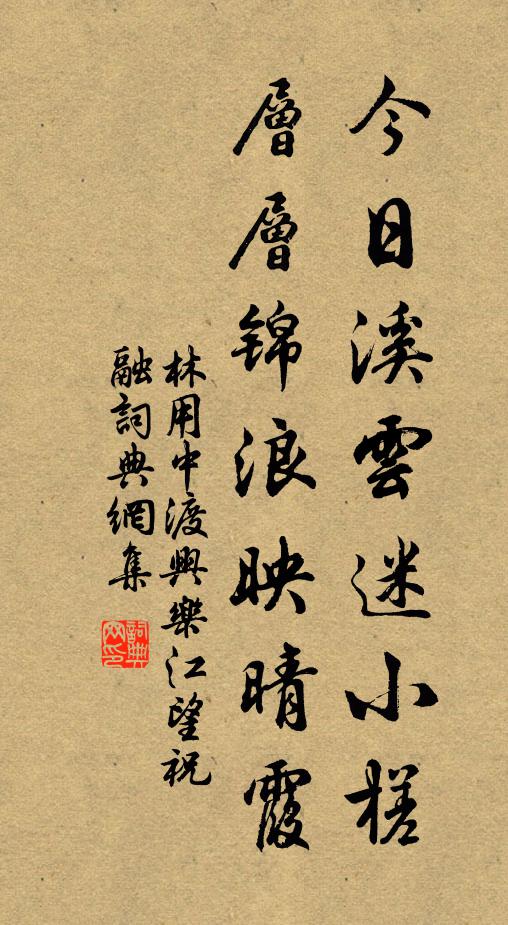 今日溪雲迷小槎
層層錦浪映晴霞
林用中渡興樂江望祝
融詞典網集
詞典網印